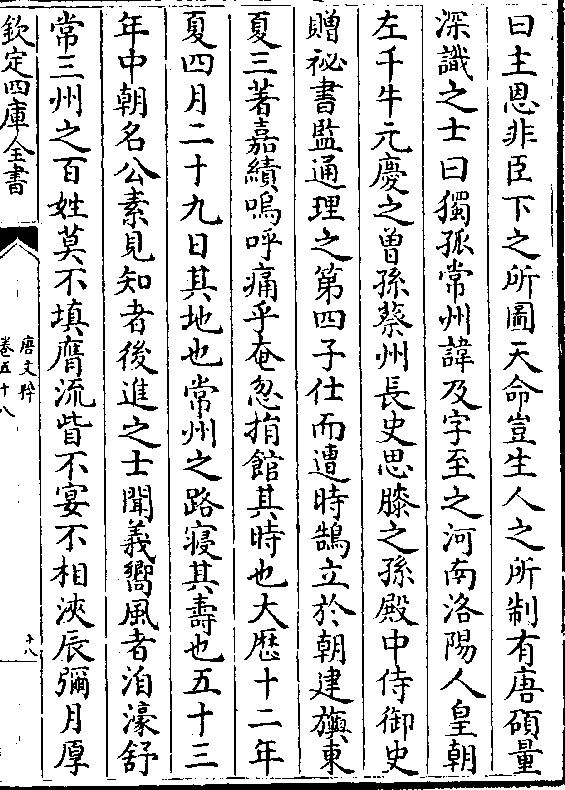 曰主恩非臣下之所圖天命豈生人之所制有唐碩量
深識之士曰獨孤常州諱及字至之河南洛陽人皇朝
左千牛元慶之曾孫蔡州長史思膝之孫殿中侍御史
贈祕書監通理之第四子仕而遭時鵠立於朝建旟東
夏三著嘉績嗚呼痛乎奄忽捐館其時也大厯十二年
夏四月二十九日其地也常州之路寝其壽也五十三
年中朝名公素見知者後進之士聞義嚮風者洎濠舒
常三州之百姓莫不填膺流眥不宴不相浹辰彌月厚
欽定四庫全書
唐文粹
卷五十八
十八